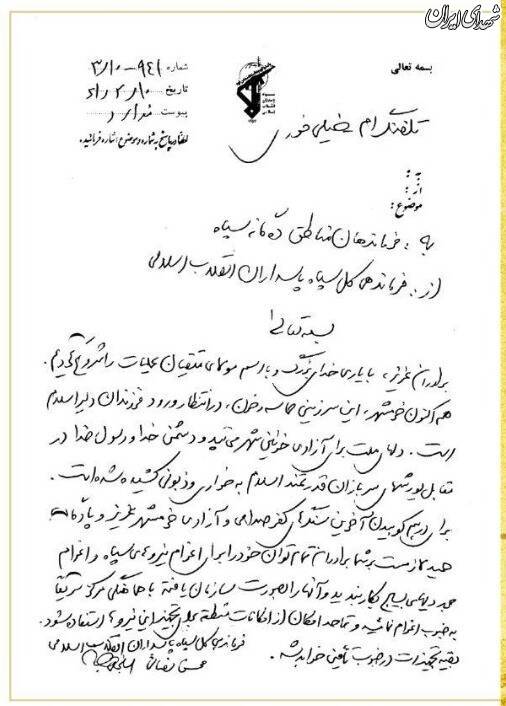 شهدای ایران
بسمه تعالی
شماره ۹۴۱-۳/۱۰
تاریخ ۶۱/۲/۱۰
پیوست ندارد
لطفا در پاسخ به شماره و موضوع اشاره فرمائید.
تلفنگرام خیلی فوری
به:
از:
موضوع:
به: فرماندهان مناطق ده گانه سپاه
از: فرماندهی کل سپاه پاسداران انقلاب اسلامی
بسمه تعالی
برادران عزیز، با یاری خدای بزرگ و با رسم مولای متقیان عملیات را شروع کردیم.
هم اکنون خرمشهر، این سرزمین حماسه و خون، در انتظار ورود فرزندان دلیر اسلام
است. دلهای ملت برای آزادی خونین شهر می تپد و دشمن خدا و رسول خدا در
مقابل یورشهای سربازان قدرتمند اسلام به خواری و زبونی کشیده شده است.
برای درهم کوبیدن آخرین سنگرهای کفر صدامی و آزادی خرمشهر عزیز و پادگان
حمید لازمست برشما برادران تمام توان خود را برای اعزام نیروهای سپاه و اعزام
نیروهای بسیج بکار بندید و آنها را بصورت سازمان یافته با هماهنگی مرکز سریعاً
به جنوب اعزام نمائید و تا حد امکان از امکانات منطقه برای تجهیز این نیروها استفاده شود.
بقیه تجهیزات در جنوب تأمین خواهد شد.
فرماندهی کل سپاه پاسداران انقلاب اسلامی
محسن رضائی